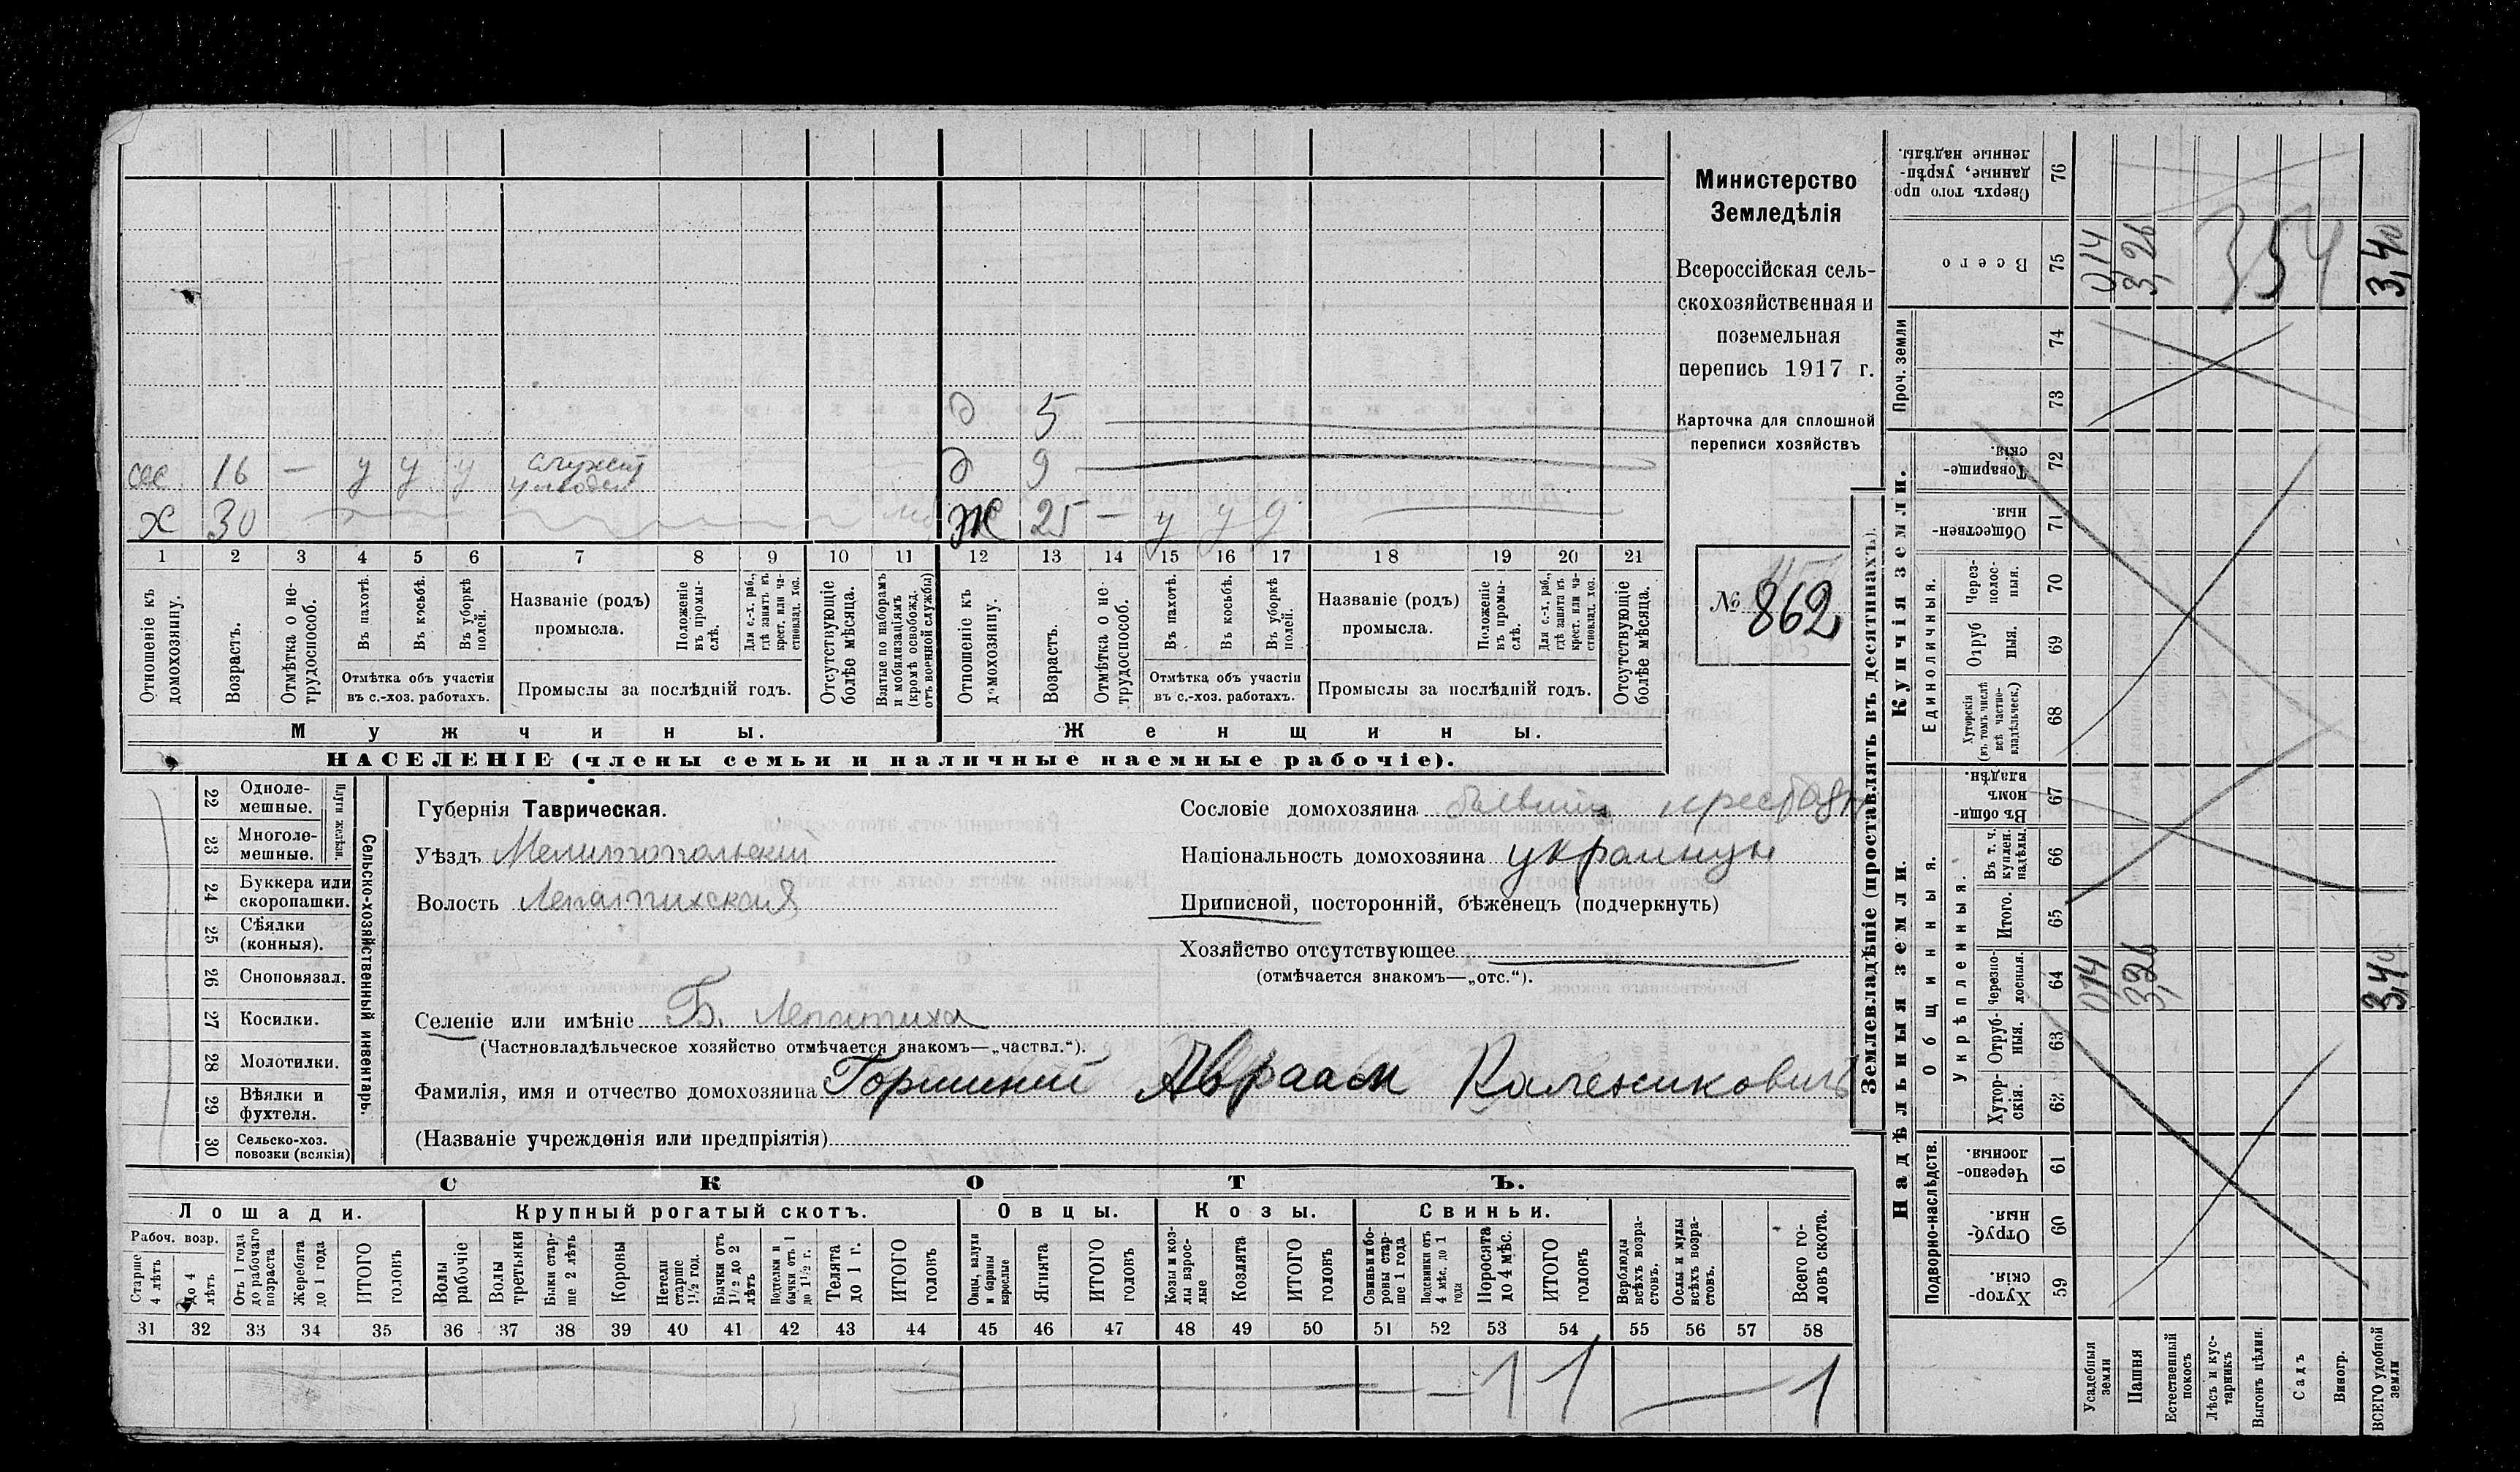 д 5
сес 16 — у у у служит д 9
х 30 Ж 25 — у у у
1 2 3 4 5 6 7 8 9 10 11 12 13 14 15 16 17 18 19 20 21
Отношеніе къ домохозяину.
Возрастъ.
Отмѣтка о нетрудоспособ.
Въ пахотѣ.
Въ косьбѣ.
Въ уборкѣ полей.
Отмѣтка объ участіи
въ с.-хоз. работахъ.
Названіе (родъ)
промысла.
Положеніе въ промыслѣ.
Для с.-х. раб., гдѣ занятъ въ крест. или частновлад. хоз.
Промыслы за послѣдній годъ.
Отсутствующіе болѣе мѣсяца.
Взятые по наборамъ и мобилизаціямъ (кромѣ освобожд. отъ военной службы)
Отношеніе къ домохозяину.
Возрастъ.
Отмѣтка о нетрудоспособ.
Въ пахотѣ.
Въ косьбѣ.
Въ уборкѣ полей.
Отмѣтка объ участіи
въ с.-хоз. работахъ.
Названіе (родъ)
промысла.
Положеніе въ промыслѣ.
Для с.-х. раб., гдѣ занята въ крест. или частновлад. хоз.
Промыслы за послѣдній годъ.
Отсутствующіе болѣе мѣсяца.
Мужчины. Женщины.
НАСЕЛЕНІЕ (члены семьи и наличные наемные рабочіе).
Министерство
Земледѣлія
Всероссійская сель-
скохозяйственная и
поземельная
перепись 1917 г.
Карточка для сплошной
переписи хозяйствъ
№ 862
22 Однолемешные.
23 Многолемешные.
Плуги желѣзн.
24 Буккера или скоропашки.
25 Сѣялки (конныя).
26 Сноповязал.
27 Косилки.
28 Молотилки.
29 Вѣялки и фухтеля.
30 Сельско-хоз. повозки (всякія)
Сельско-хозяйственный инвентарь.
Губернія Таврическая.
Уѣздъ Мелитопольский
Волость Лепатихская
Селеніе или имѣніе Б. Лепатиха
(Частновладѣльческое хозяйство отмѣчается знакомъ—„частвл.“).
Фамилія, имя и отчество домохозяина Горшений Авраам Каленикович
(Названіе учрежденія или предпріятія)
Сословіе домохозяина бывший
Національность домохозяина украинцы
Приписной, посторонній, бѣженец (подчеркнуть)
Хозяйство отсутствующее
(отмѣчается знакомъ—„отс.“).
СКОТЪ.
Лошади. Крупный рогатый скотъ. Овцы. Козы. Свиньи.
Рабоч. возр.
Старше 4 лѣтъ
до 4 лѣтъ
Отъ 1 года до рабочаго возраста
Жеребята до 1 года
ИТОГО головъ
Волы рабочіе
Волы третьяки
Быки старше 2 лѣтъ
Коровы
Нетели старше 1½ год.
Бычки отъ 1½ до 2 лѣтъ
Подтелки и бычки отъ 1 до 1½ г.
Телята до 1 г.
ИТОГО головъ
Овцы, валухи и бараны взрослые
Ягнята
ИТОГО головъ
Козы и козлы взрослые
Козлята
ИТОГО головъ
Свиньи и боровы старше 1 года
Подсвинки отъ 4 мѣс. до 1 года
Поросята до 4 мѣс.
ИТОГО головъ
Верблюды всѣхъ возрастовъ.
Ослы и мулы всѣхъ возрастовъ.
Всего головъ скота.
31 32 33 34 35 36 37 38 39 40 41 42 43 44 45 46 47 48 49 50 51 52 53 54 55 56 57 58
— 1 1 — 1
Землевладѣніе (проставлять въ десятинахъ).
Купчія земли.
Надѣльныя земли.
Сверхъ того проданные, укрѣпленные надѣлы. 76
Всего 75 0,14 3,26 354 3,40
Проч. земли 74
73
Товарищескія. 72
Общественныя. 71
Единоличныя.
Черезполосныя. 70
Отрубныя. 69
Хуторскія (въ томъ числѣ всѣ частновладѣльческ.) 68
Общинныя.
Въ общинномъ владѣн. 67
Укрѣпленныя.
Въ т. ч. куплен. надѣлы. 66
Итого. 65
Черезполосныя. 64 0,14 3,26 3,40
Отрубныя. 63
Хуторскія. 62
Подворно-наслѣдств.
Черезполосныя. 61
Отрубныя. 60
Хуторскія. 59
Усадебныя земли
Пашня
Естественный покосъ
Лѣсъ и кустарникъ
Выгонъ цѣлин.
Садъ
Виногр.
ВСЕГО удобной земли